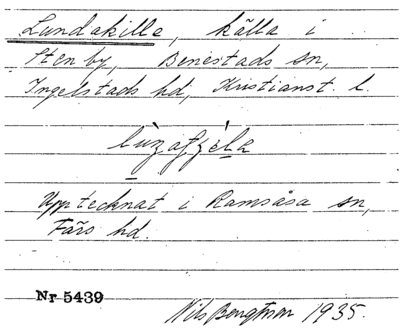 Lundakilla, källa i
Stenby, Benestads sn,
Ingelstads hd, Kristianst. l.
Upptecknat i Ramsåsa sn,
Färs hd.
Nr 5439
Nils Bengtsson 1935.